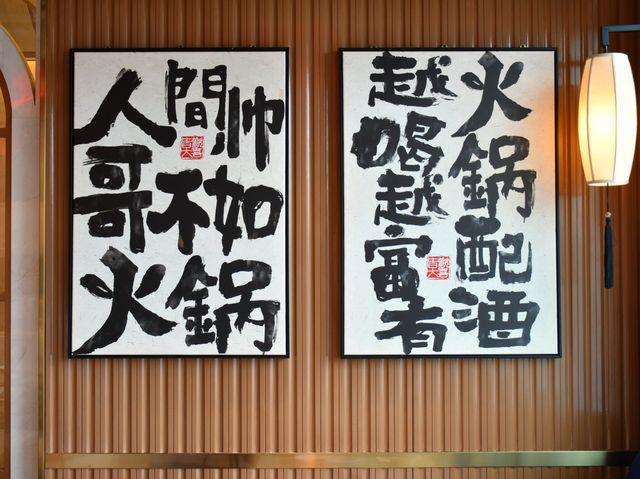 人間帅
哥不如
火鍋
火鍋配酒
越喝越富有